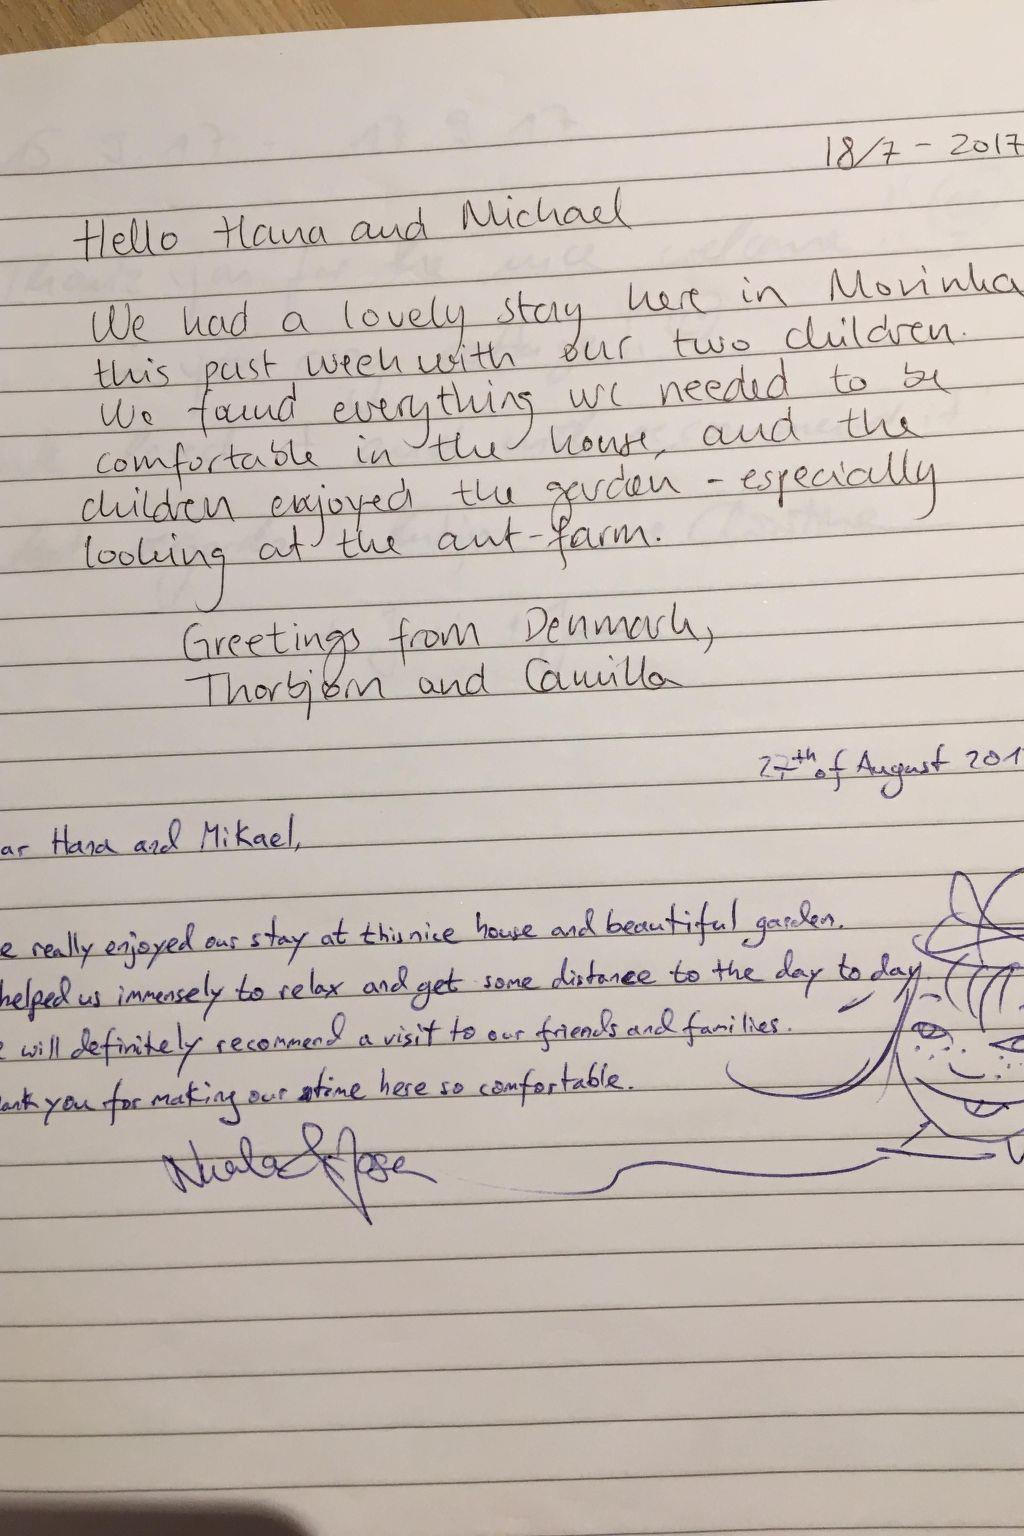 18/7 - 2017
Hello Hana and Michael
We had a lovely stay here in Morinka
this past week with our two children.
We found everything we needed to be
comfortable in the house, and the
children enjoyed the garden - especially
looking at the ant-farm.
Greetings from Denmark,
Thorbjørn and Camilla
27th of August 201
ar Hana and Mikael,
e really enjoyed our stay at this nice house and beautiful garden.
helped us immensely to relax and get some distance to the day to day.
e will definitely recommend a visit to our friends and families.
ank you for making our time here so comfortable.